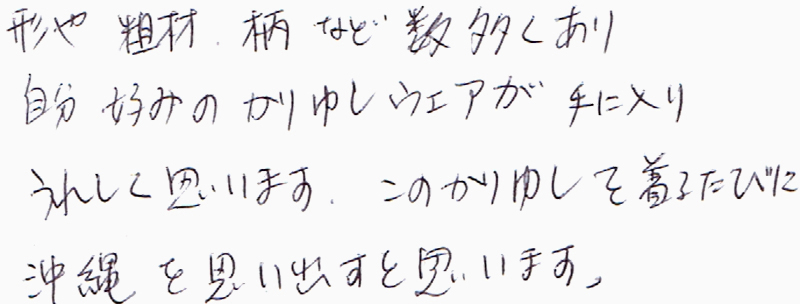 形や 粗材、柄 など 数多くあり
自分 好みの かりゆしウェアが 手に入り
うれしく思います。このかりゆしを着るたびに
沖縄を思い出すと思います。